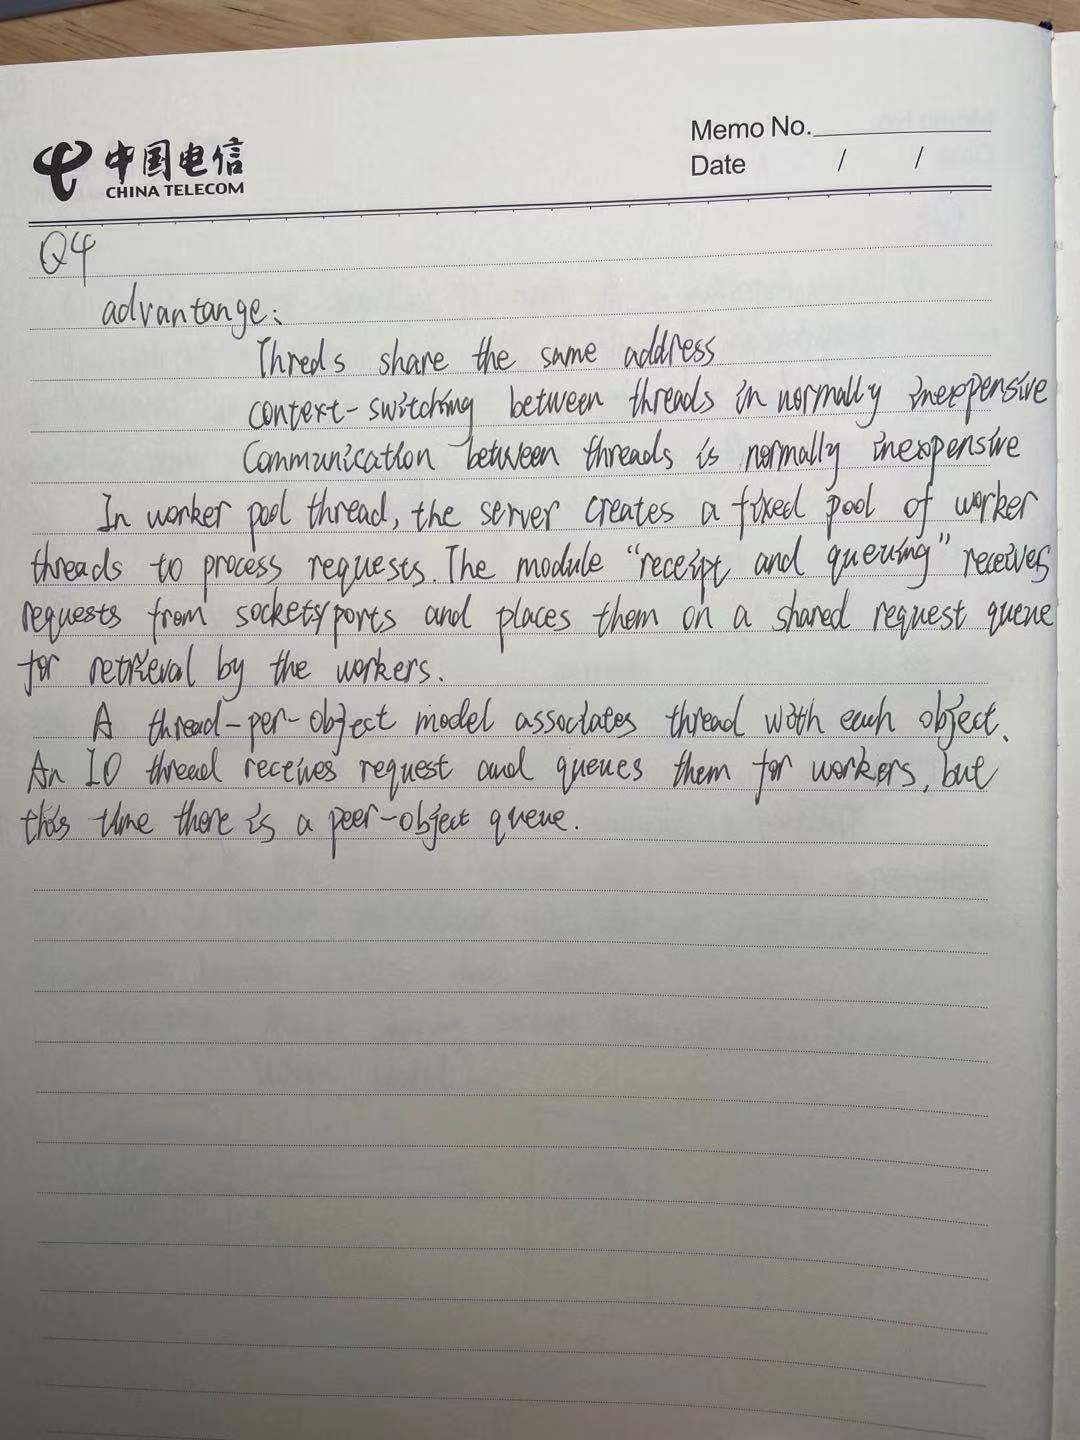 中国电信
CHINA TELECOM
Memo No.
Date / /
Q4
advantange:
Threds share the same address
context-switching between threads in normally inexpensive
Communication between threads is normally inexpensive
In worker pool thread, the server creates a fixed pool of worker
threads to process requests. The module "receipt and queuing" receives
requests from sockets/ports and places them on a shared request queue
for retrieval by the workers.
A thread-per-object model associates thread with each object.
An IO thread receives request and queues them for workers, but
this time there is a peer-object queue.